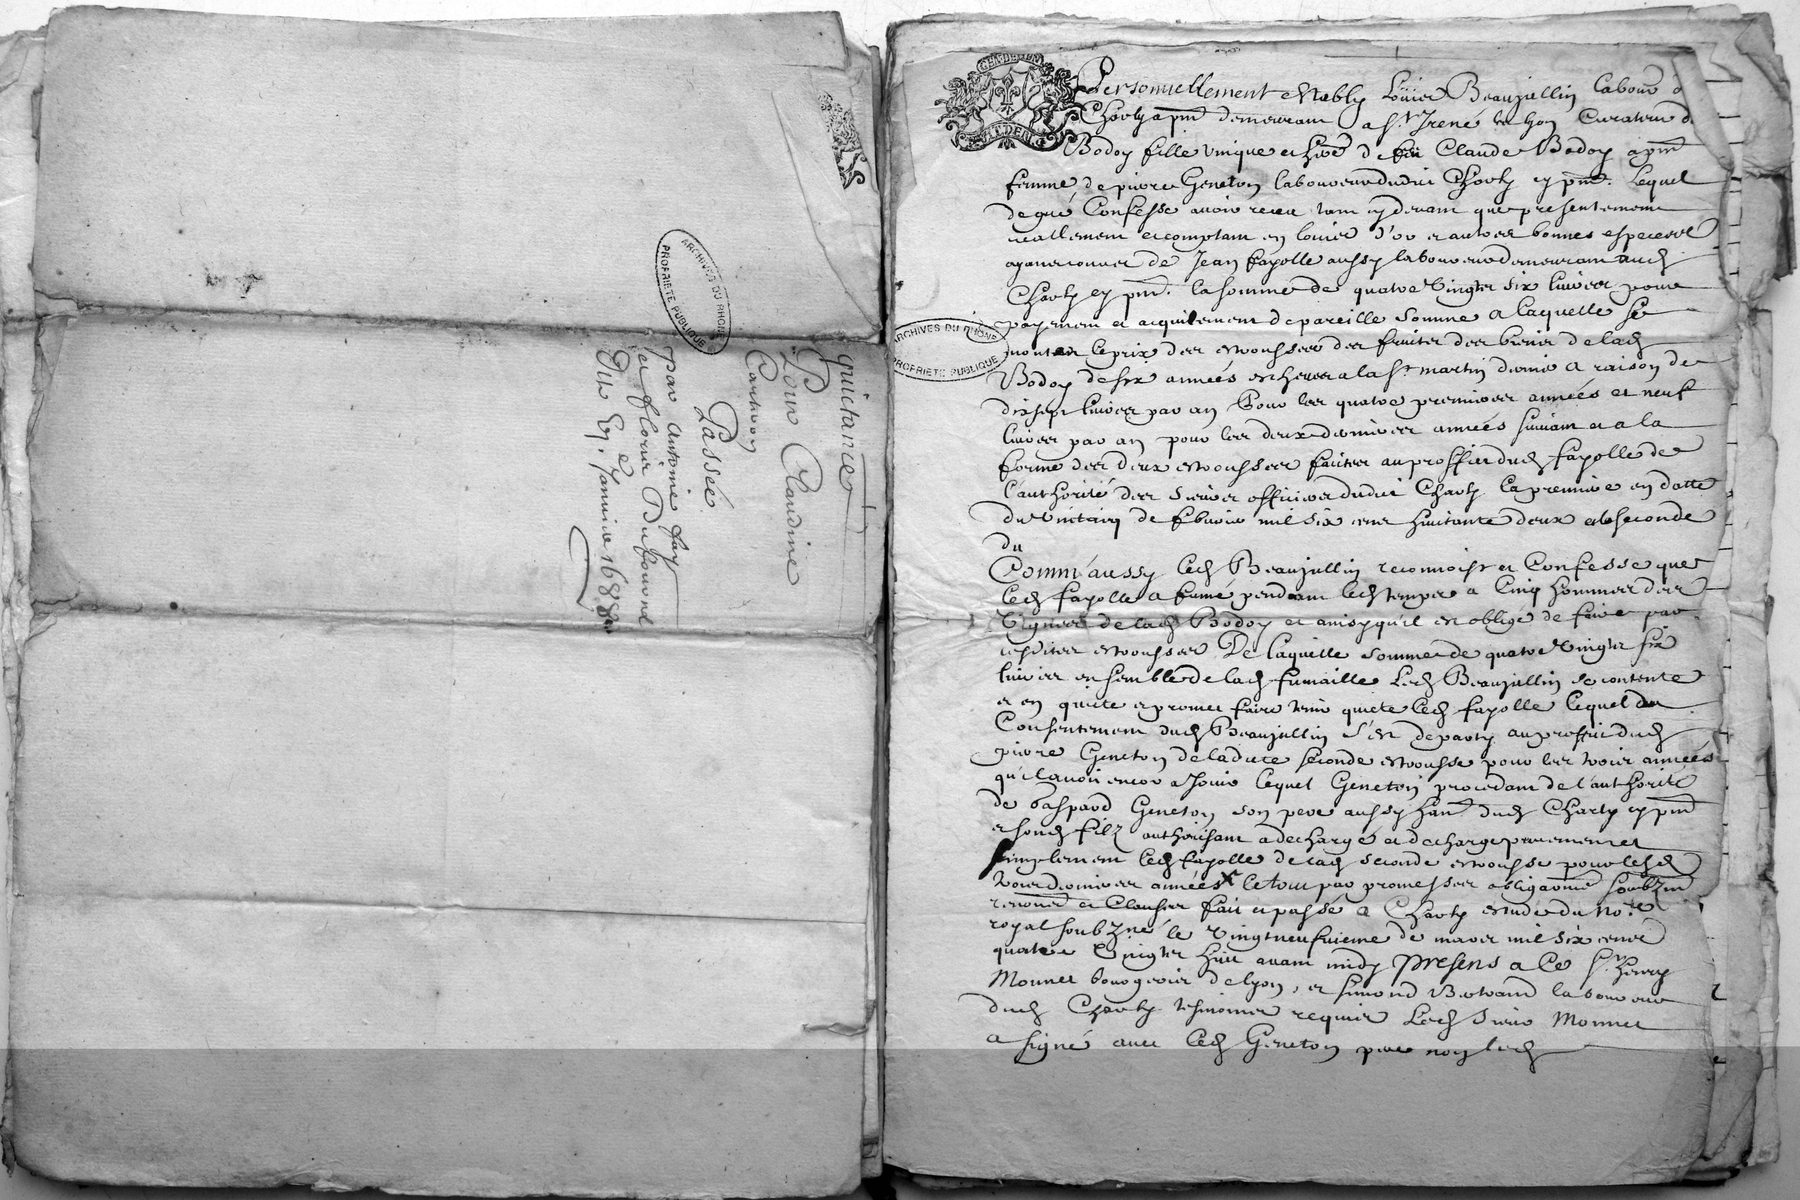 quictance
Pour Claudine
Carteron
Passée
par Antoine fay
et florie Dufournel
Du Ej. Janvier 1688
ARCHIVES DU RHONE
PROPRIETE PUBLIQUE
GEN DE LION
Personnellement estably Louis Beaujollin laboureur
Charly apnt demeurant a St. Irené Curateur
Bodoy fille unique et here de feu Claude Bodoy apnt
femme de pierre Geneton laboureur dudit Charly cy pnt. Lequel
de gré Confesse avoir receu tant cy devant que presentement
reallement et comptant en louis d'or et autres bonnes especes
de Jean fayolle aussy laboureur demeurant aud
Charly cy pnt. la somme de quatre vingts six livres pour
payement et acquitement de pareille somme a laquelle se
montent le prix des estrousses des fruits des biens de lad
Bodoy de six années escheues a la St martin dernier a raison de
dix sept livres par an Pour les quatre premieres années et neuf
livres par an pour les deux dernieres années suivant et a la
forme des deux estrousses faites au proffit dud fayolle de
l'authorité des sieurs officiers dudit Charly la premiere en datte
du vintcinq de febvrier mil six cens huitante deux et la seconde
du
Comm'aussy led Beaujollin reconnoist et Confesse que
led fayolle a fumé pendant led temps a Cinq hommées des
vignes de lad Bodoy et ainsy qu'il est obligé de faire par
lesdites estrousses De laquelle somme de quatre vingts six
livres ensemble de lad fumaille Led Beaujollin se contente
et en quicte et promet faire tenir quicte led fayolle lequel du
Consentement dud Beaujollin s'est departy au proffit dud
pierre Geneton de ladite seconde estrousse pour les trois années
qu'il avoit encor a Jouir lequel Geneton procedant de l'authorité
de Gaspard Geneton son pere aussy hant dud Charly cy pnt
et sond filz authorisant a dechargé et decharge purement et
simplement led fayolle de lad seconde estrousse pour lesd
trois dernieres années x le tout par promesses obligations soubzmon
renoncon et Clauses fait et passé a Charly estude du Nore
royal soubzné le vingtneufvieme de mars mil six cens
quatre vingts huit avant midy presens a ce Sr. henry
Monnet bourgeois de lyon, et simond Bertrand laboureur
dud Charly tesmoins requis Led sieur Monnet
a signé avec led Geneton pere non led
ARCHIVES DU RHONE
PROPRIETE PUBLIQUE